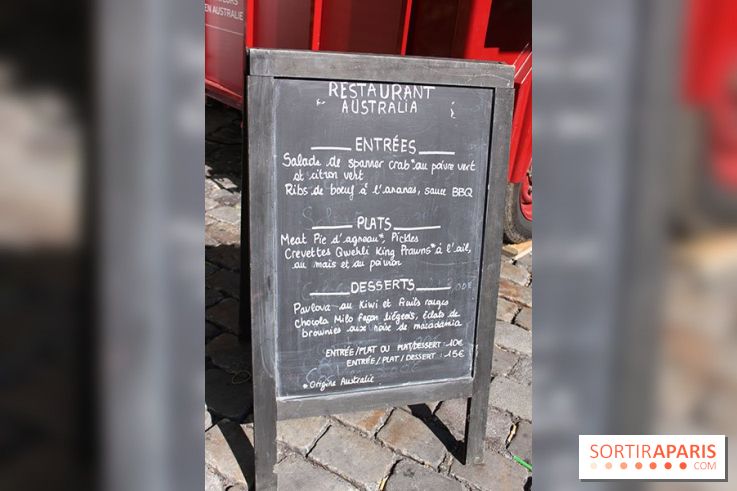 EURS
EN AUSTRALIE
RESTAURANT
AUSTRALIA
ENTRÉES
Salade de spanner crab* au poivre vert
et citron vert
Ribs de bœuf à l'ananas, sauce BBQ
PLATS
Meat Pie d'agneau*, Pickles
Crevettes Qwehli King Prawns* à l'ail,
au maïs et au poivron
DESSERTS
Pavlova au Kiwi et fruits rouges
Chocola Milo façon liégeois, éclats de
brownies aux noix de macadamia
ENTRÉE/PLAT OU PLAT/DESSERT : 10€
ENTRÉE / PLAT / DESSERT : 15€
*Origine Australie
SORTIRAPARIS
.COM